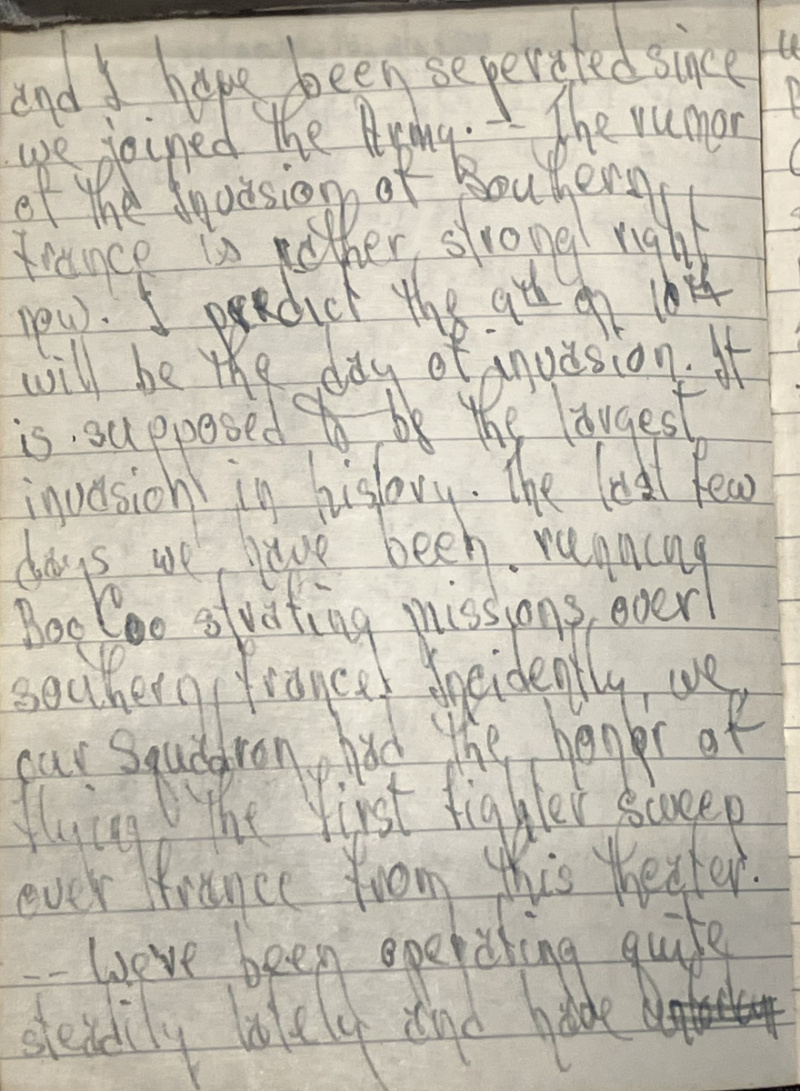 and I have been seperated since
we joined the Army. -- The rumor
of the Invasion of Southern
France is rather strong right
now. I predict the 9th or 10th
will be the day of invasion. It
is supposed to be the largest
invasion in history. The last few
days we have been running
Boo Coo strafing missions over
southern France. Incidently, we,
our Squadron, had the honor of
flying the first fighter sweep
over France from this theater.
-- We've been operating quite
steadily lately and have